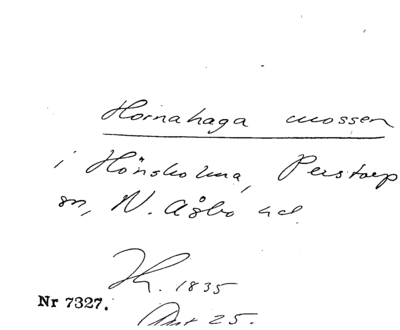 Hornahaga mossen
i Hönsholma, Perstorp
sn, N. Åsbo hd.
K. 1835
Nr 7327.
25.